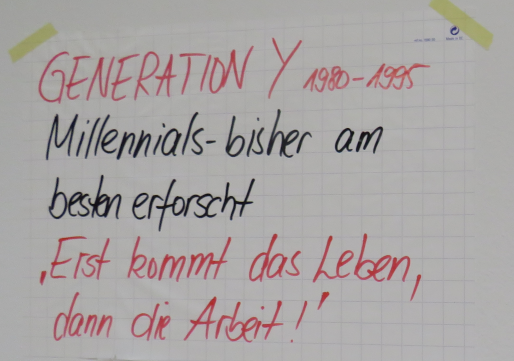 GENERATION Y 1980-1995
Millennials-bisher am
besten erforscht
,Erst kommt das Leben,
dann die Arbeit!'